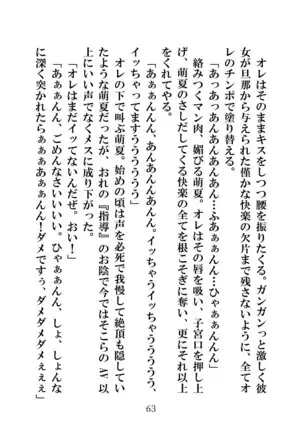 オレはそのままキスをしつつ腰を振りたくる。ガンガンっと激しく彼
女が旦那から与えられた僅かな快楽の欠片まで残さないように、全てオ
レのチンポで塗り替える。
「あっあっあんあんああんっ…ふあぁぁぁん…ひゃぁぁんんん」
絡みつくマン肉、媚びる萌夏。オレはその唇を吸い、子宮口を押し上
げ、萌夏のさしだしてくる快楽の全てを根こそぎに奪い、更にそれ以上
をくれてやる。
「あぁぁんんん、あんあんんあんん。イッちゃうイッちゃうううううう、
イッちゃってますううううう」
オレの下で叫ぶ萌夏。始めの頃は声を必死で我慢して絶頂も隠してい
たような萌夏だったが、おれの『指導』のお陰で今ではそこらのAV以
上にいい声でなくメスに成り下がった。
「オレはまだイッてないんだぜ。おい！」
「あぁぁんん、ごめんなさいいい。ひゃぁぁんん、しょ、しょんな
に深く突かれたらぁぁぁあぁぁんんん！ダメですぅ、ダメダメダメぇぇぇ
63